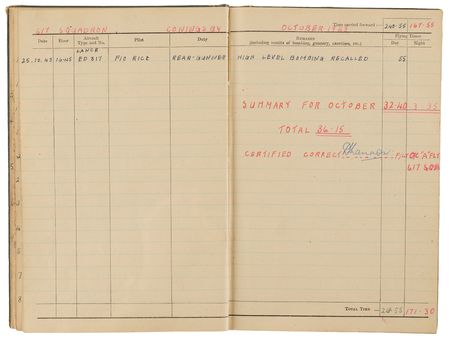 617 SQUADRON CONINGSBY OCTOBER 1943 Time carried forward:— 240·55 167·55
Date Hour Aircraft Type and No. Pilot Duty REMARKS (including results of bombing, gunnery, exercises, etc.) Flying Times Day Night
LANCS
25.10.43 ED 817 F/O RICE REAR-GUNNER HIGH LEVEL BOMBING RECALLED 55
SUMMARY FOR OCTOBER 32·40 3·35
TOTAL 36·15
CERTIFIED CORRECT F/LT O/C "A" FLT
617 SQDN
TOTAL TIME 171·30